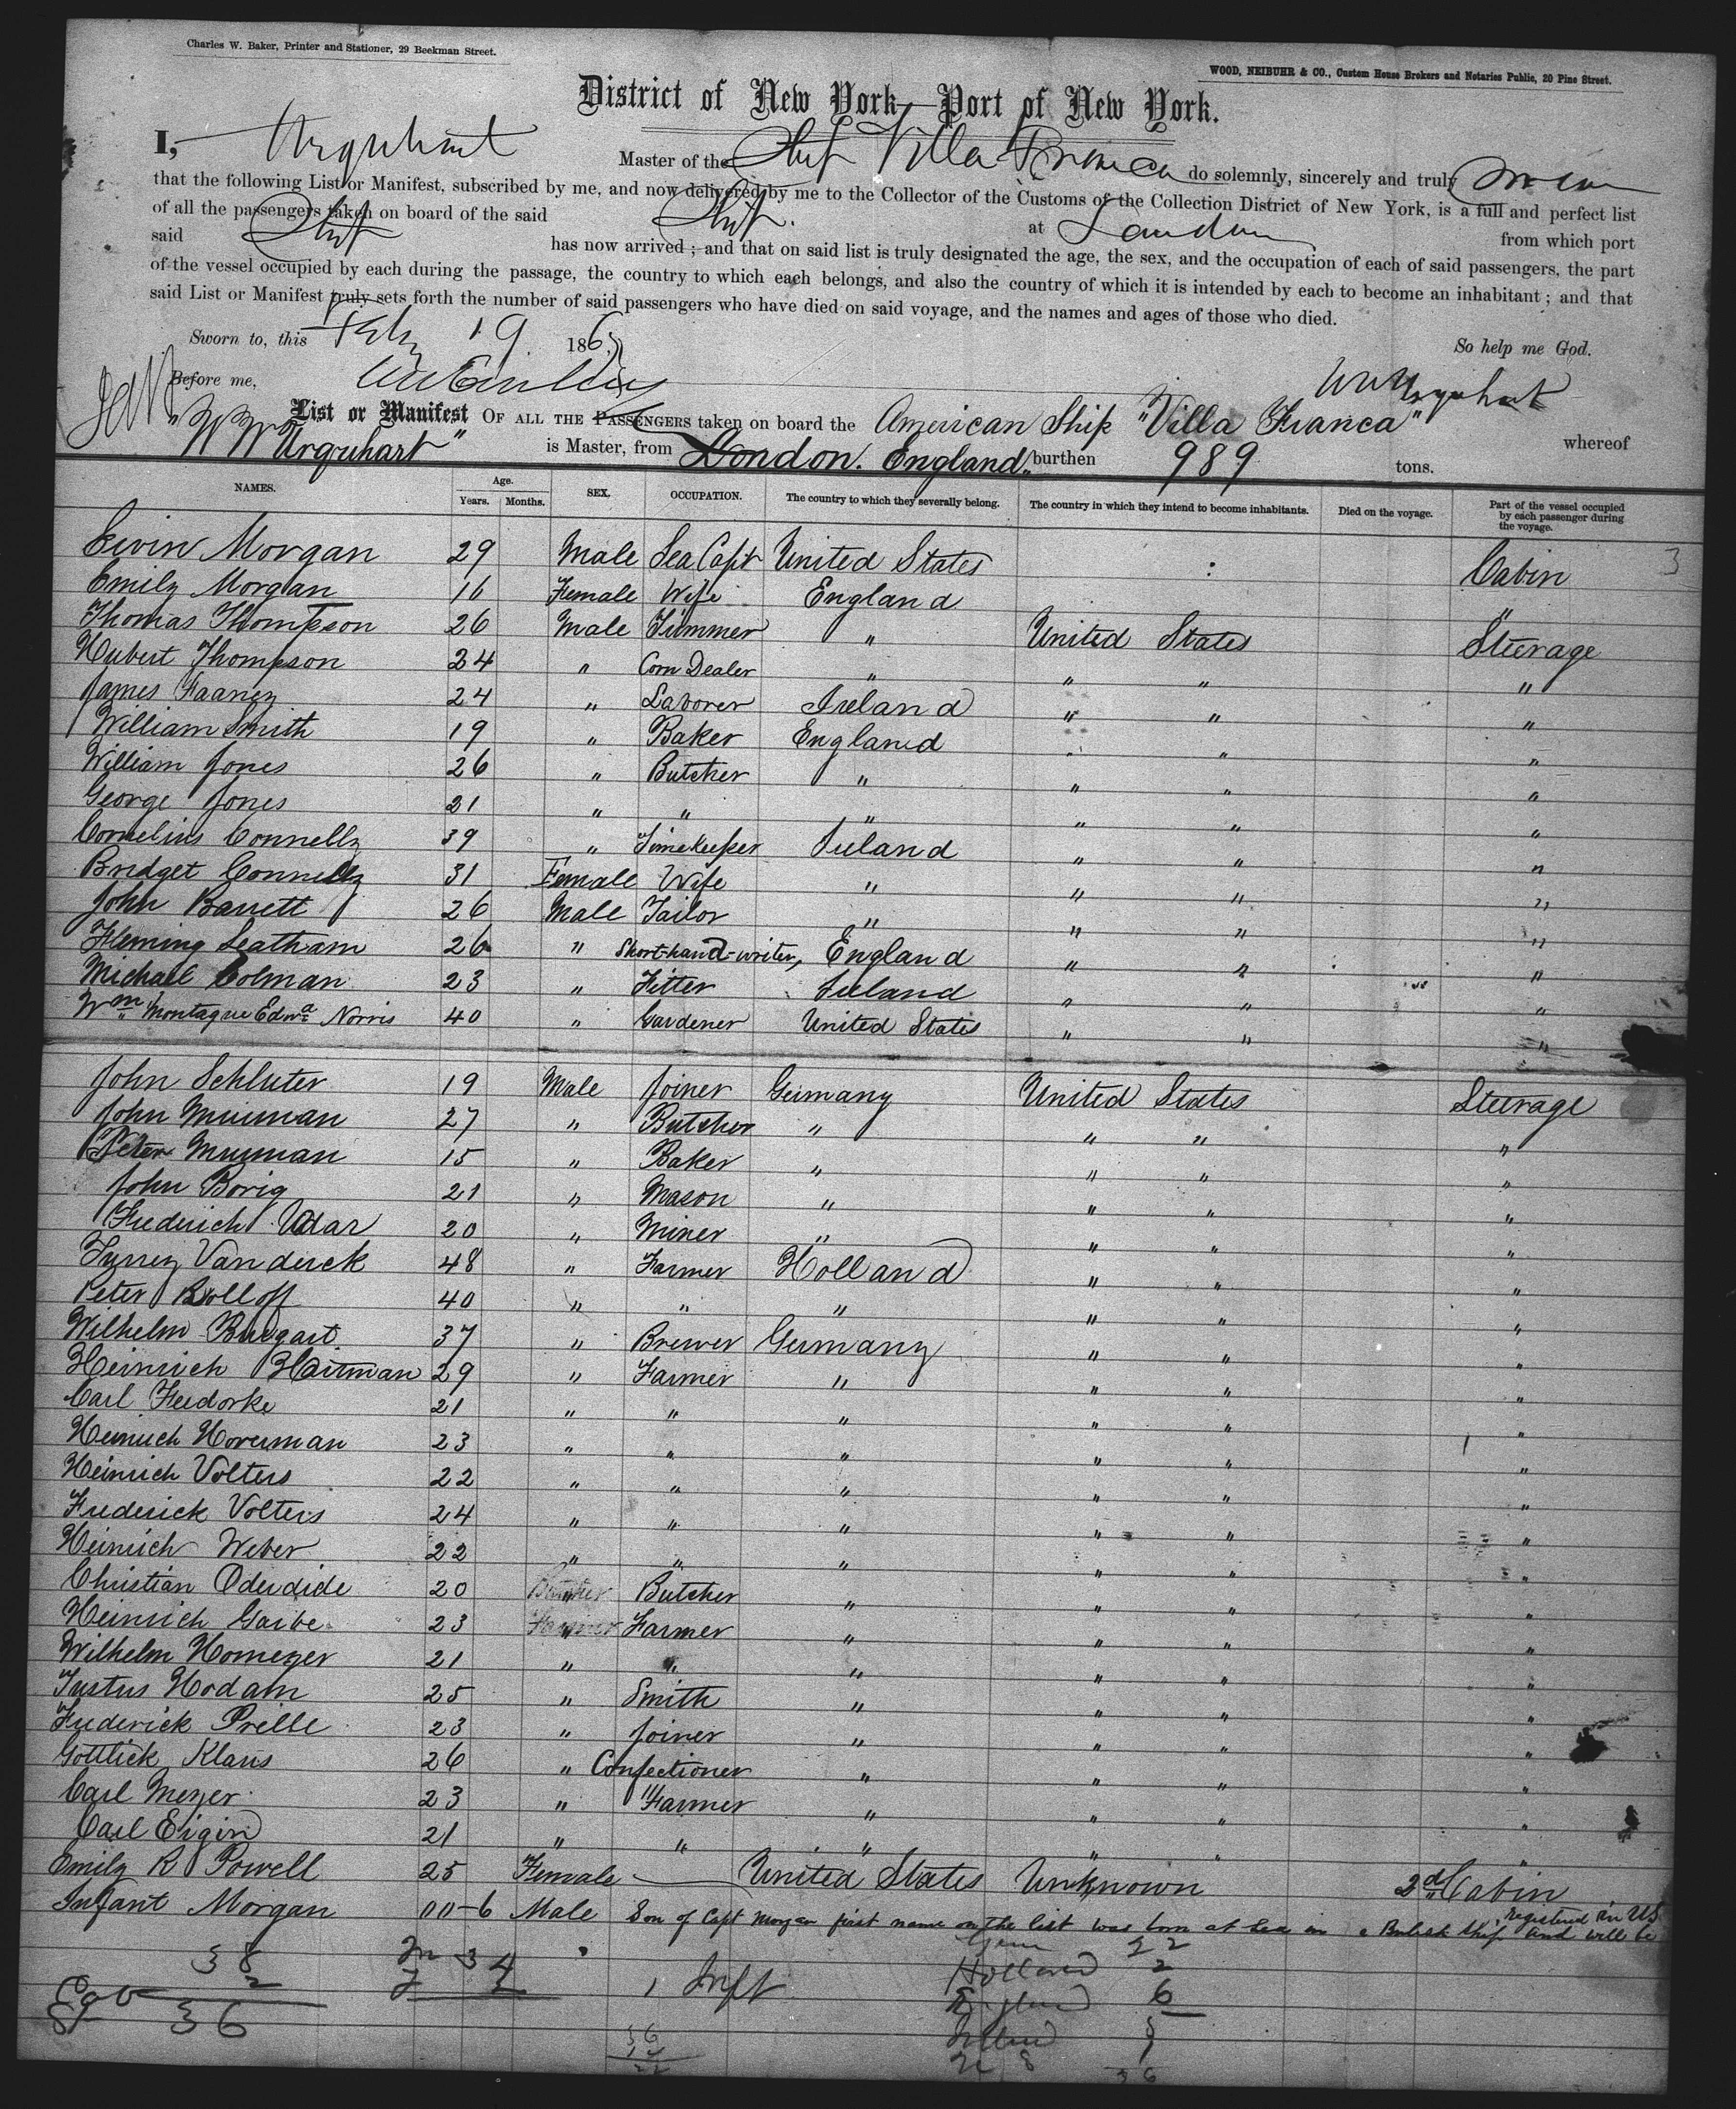 Charles W. Baker, Printer and Stationer, 29 Beekman Street.
WOOD, NEIBUHR & CO., Custom House Brokers and Notaries Public, 20 Pine Street.
District of New York—Port of New York.
I, Urquhart Master of the Ship Villa Franca do solemnly, sincerely and truly swear
that the following List or Manifest, subscribed by me, and now delivered by me to the Collector of the Customs of the Collection District of New York, is a full and perfect list
of all the passengers taken on board of the said Ship at London from which port
said Ship has now arrived; and that on said list is truly designated the age, the sex, and the occupation of each of said passengers, the part
of the vessel occupied by each during the passage, the country to which each belongs, and also the country of which it is intended by each to become an inhabitant; and that
said List or Manifest truly sets forth the number of said passengers who have died on said voyage, and the names and ages of those who died.
Sworn to, this Feby 19 186 So help me God.
Before me, WW Urquhart
List or Manifest OF ALL THE PASSENGERS taken on board the American Ship "Villa Franca" whereof
"W W Urquhart" is Master, from London. England, burthen 989 tons.
NAMES. Age. Years. Months. SEX. OCCUPATION. The country to which they severally belong. The country in which they intend to become inhabitants. Died on the voyage. Part of the vessel occupied by each passenger during the voyage.
Morgan 29 Male Sea Capt United States Cabin 3
Emily Morgan 16 Female Wife England "
Thomas Thompson 26 Male " United States Steerage
Hubert Thompson 24 " Corn Dealer " " " "
James 24 " Laborer Ireland " " "
William Smith 19 " Baker England " " "
William Jones 26 " Butcher " " " "
George Jones 21 " " " " " "
Cornelius Connelly 39 " Timekeeper Ireland " " "
Bridget Connelly 31 Female Wife " " " "
John Barrett 26 Male Tailor " " " "
Fleming Leatham 26 " Short-hand-writer, England " " "
Michael Colman 23 " Fitter Ireland " " "
Wm Montague Edwd Norris 40 " Gardener United States " " "
John Schluter 19 Male Joiner Germany United States Steerage
John 27 " Butcher " " " "
Peter 15 " Baker " " " "
John Borig 21 " Mason " " " "
Frederich 20 " Miner " " " "
48 " Farmer Holland " " "
Peter Rolloff 40 " " " " " "
Wilhelm 37 " Brewer Germany " " "
Heinrich 29 " Farmer " " " "
Carl 21 " " " " " "
Heinrich 23 " " " " " "
Heinrich Volters 22 " " " " " "
Frederick Volters 24 " " " " " "
Heinrich Weber 22 " " " " " "
Christian 20 " Butcher " " " "
Heinrich Garbe 23 " Farmer " " " "
Wilhelm Homeyer 21 " " " " " "
Justus Hodam 25 " Smith " " " "
Frederick Prelle 23 " Joiner " " " "
Gottlick Klaus 26 " Confectioner " " " "
Carl Meyer 23 " Farmer " " " "
Carl Eigin 21 " " " " " "
Emily R Powell 25 Female — United States Unknown 2d Cabin
Infant Morgan 00-6 Male Son of Capt Morgan first name on the list was born at Sea in a British Ship and will be registered in US
38 M 34 Germ 22
2 F 1 Inft Holland 2
36 England 6
Ireland 5
U S 1
36